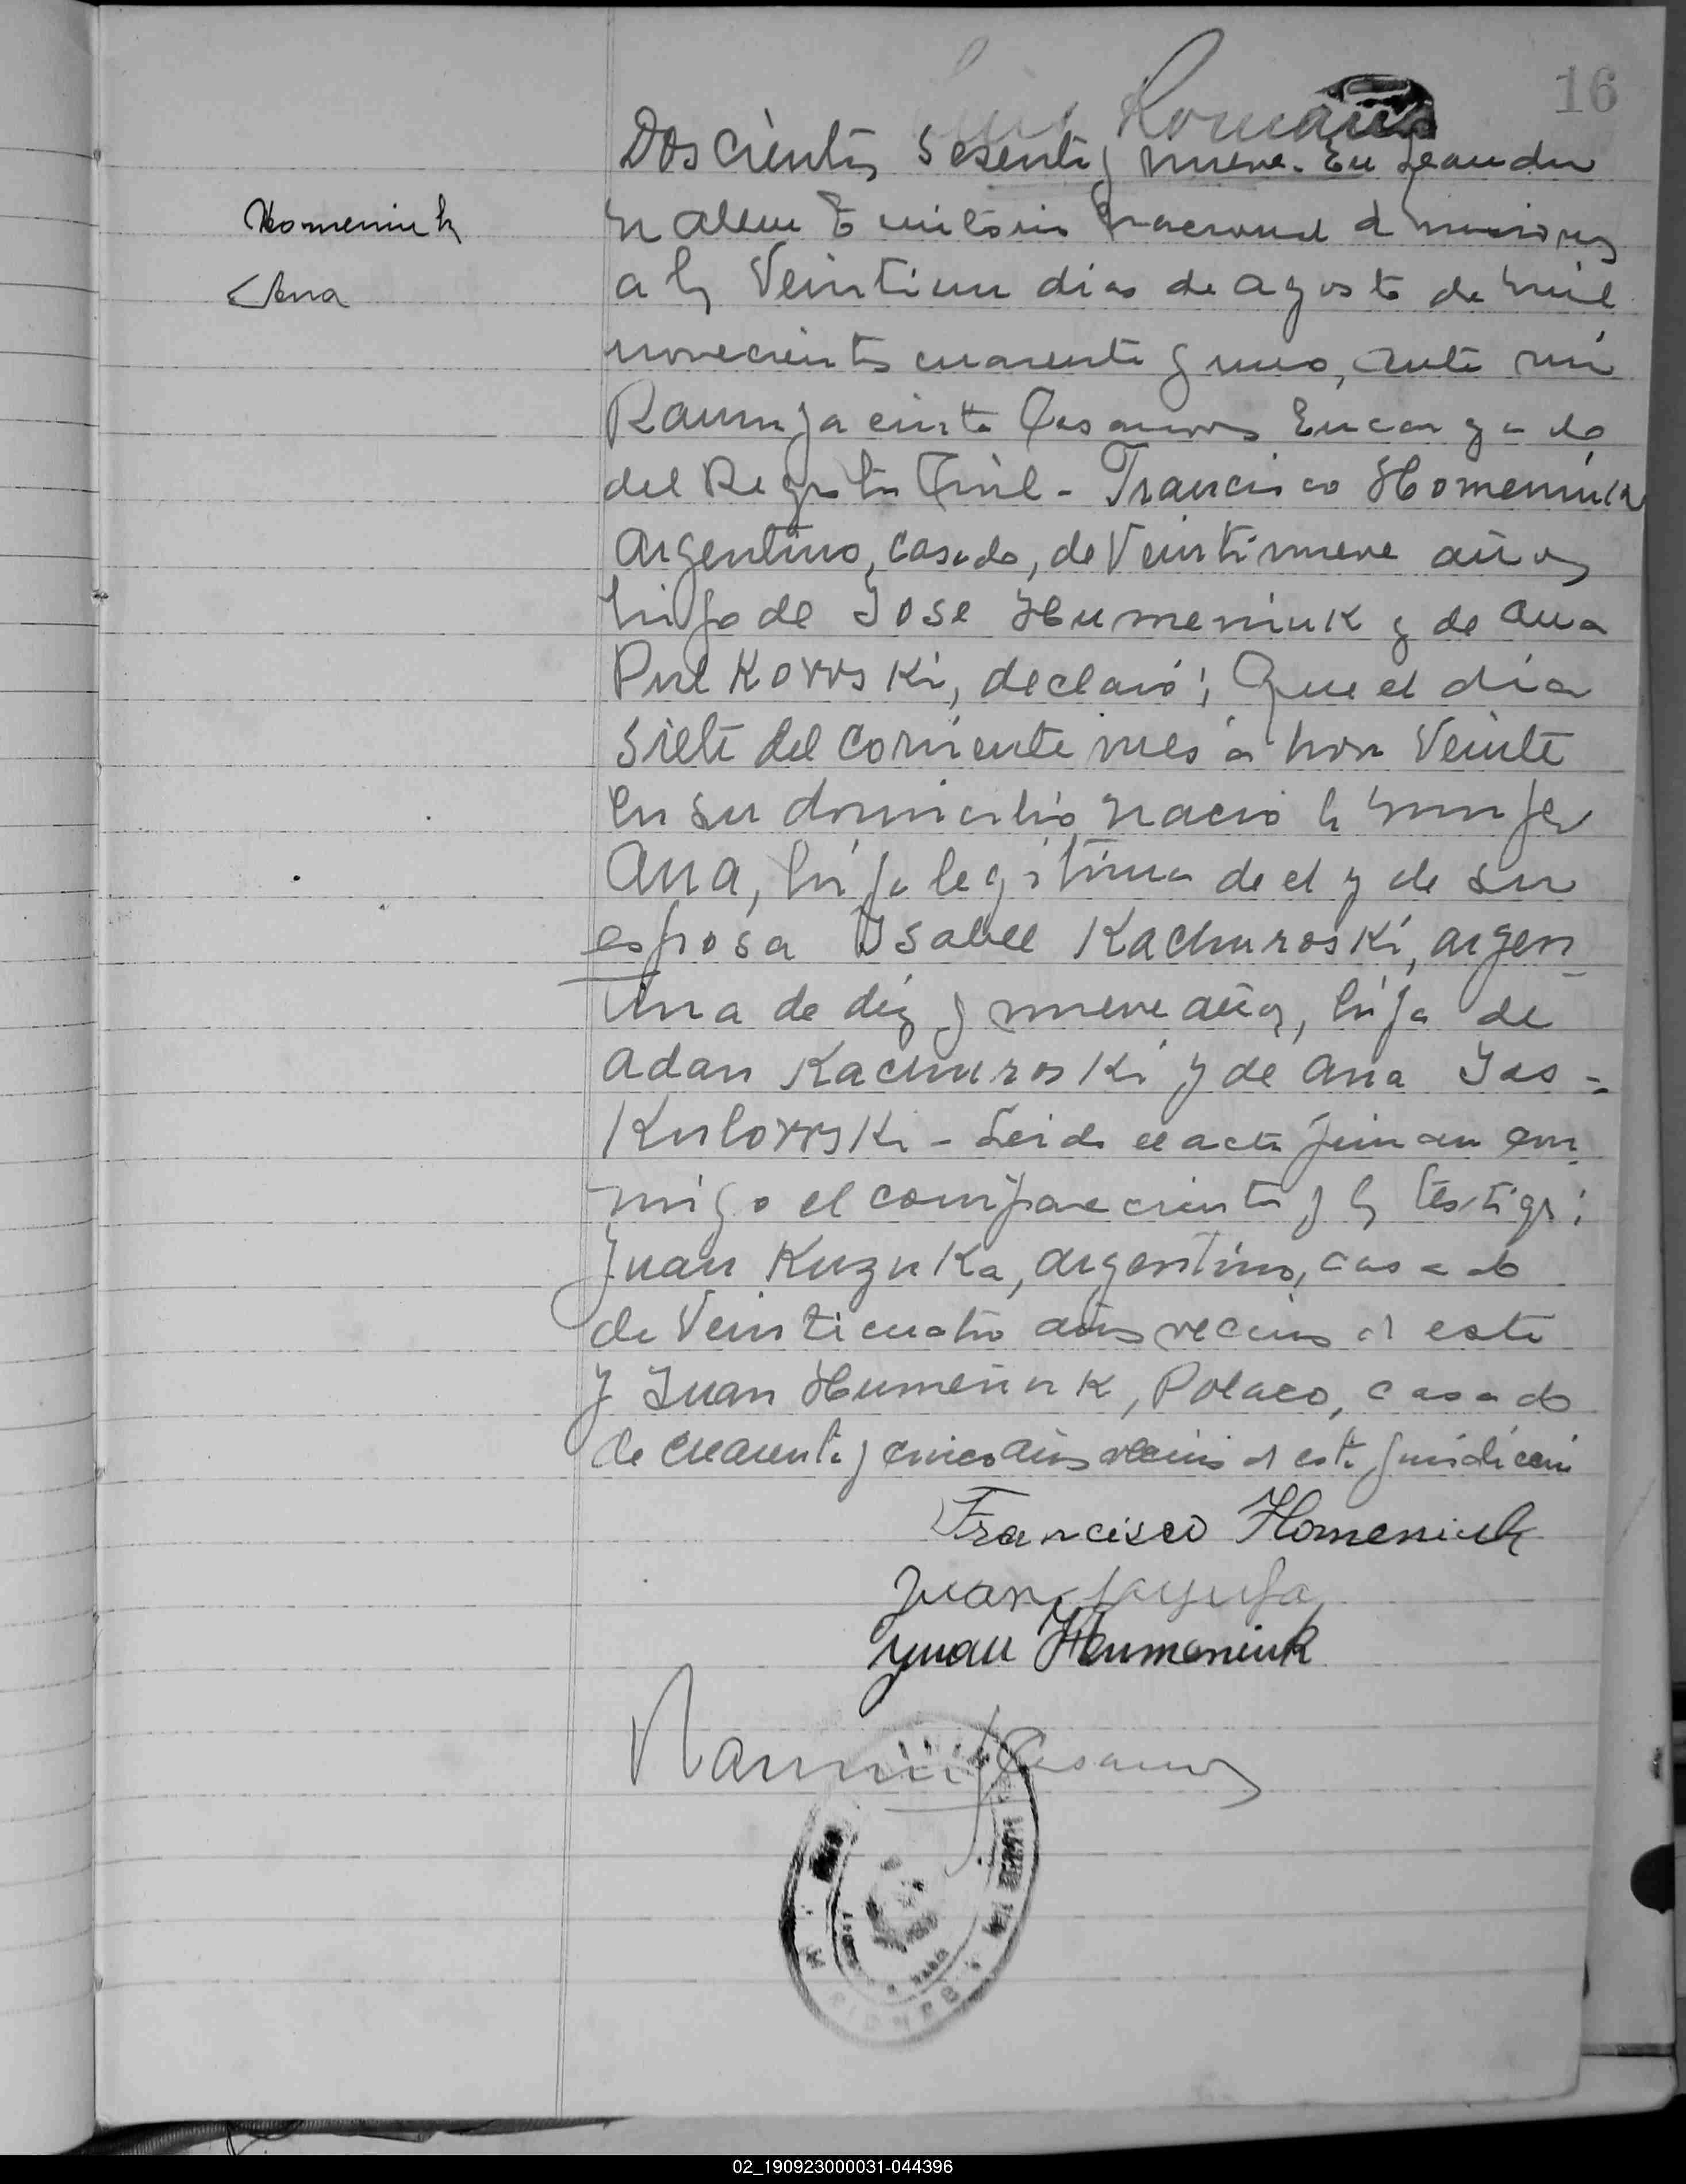 16
Doscientos Sesenta y nueve. En Leandro
N Alem Territorio Nacional de Misiones
Homeniuk
a los Veintiun dias de agosto de mil
Ana
novecientos cuarenta y uno, ante mi
Ramon Jacinto Casanova Encargado
del Registro Civil - Francisco Homeniuk
Argentino, casado, de Veintinueve años
hijo de Jose Humeniuk y de Ana
declaró; Que el dia
siete del corriente mes a hora Veinte
en su domicilio nació la mujer
Ana, hija legitima de el y de su
esposa Isabel Kachuroski, argen-
tina de diez y nueve años, hija de
Adan Kachuroski y de Ana Jas-
Kulovvski - Leida el acta firman con-
migo el compareciente y los testigos:
Juan Kuzuka, argentino, casado
de Veinticuatro años vecino de esta
y Juan Humeniuk, Polaco, casado
de cuarenta y cinco años vecino de esta jurisdiccion
Francisco Homeniuk
Juan
Juan Humeniuk
Ramon J Casanova
MISIONES
02_190923000031-044396